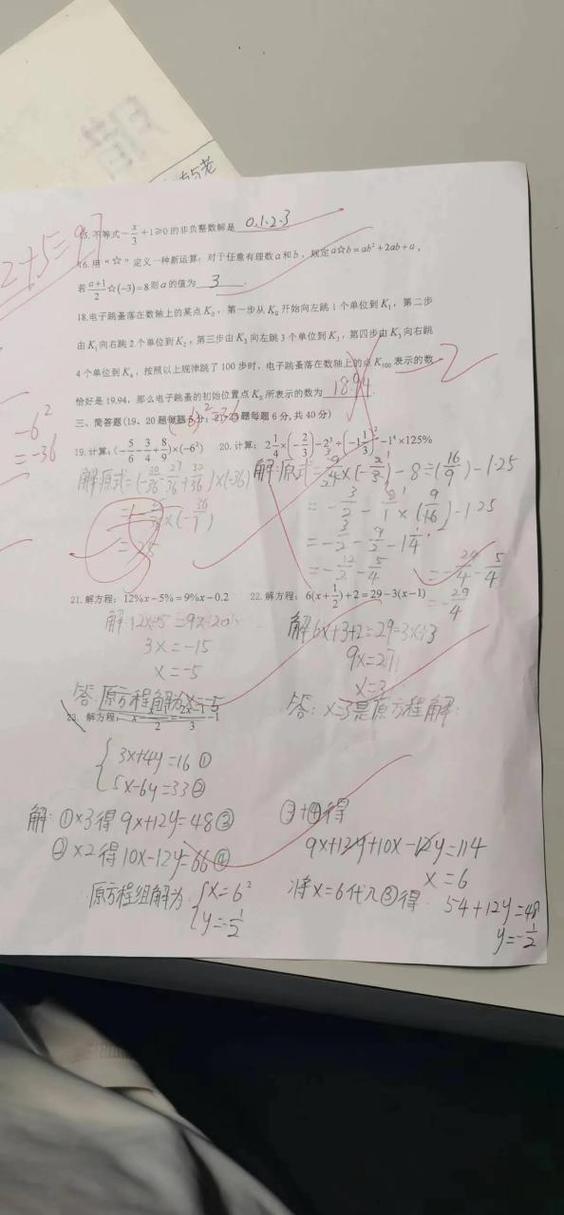 2+5=97
15. 不等式-x/3+1≥0的非负整数解是 0.1.2.3
16. 用“☆”定义一种新运算:对于任意有理数a和b,规定a☆b=ab²+2ab+a,
若(a+1)/2☆(-3)=8则a的值为 3 .
18.电子跳蚤落在数轴上的某点K₀,第一步从K₀开始向左跳1个单位到K₁,第二步
由K₁向右跳2个单位到K₂,第三步由K₂向左跳3个单位到K₃,第四步由K₃向右跳
4个单位到K₄,按照以上规律跳了100步时,电子跳蚤落在数轴上的点K₁₀₀表示的数
恰好是19.94,那么电子跳蚤的初始位置点K₀所表示的数为 18.94
-2
三、简答题(19、20题每题5分;21-23题每题6分,共40分)
-6²
=-36
19.计算:(-5/6-3/4+8/9)×(-6²) 20.计算:2 1/4×(-2/3)-2³÷(-1 1/3)²-1⁴×125%
解:原式=(-30/36-27/36+32/36)×(-36)
=25
解:原式=9/4×(-2/3)-8÷(16/9)-1.25
=-3/2-8/1×(9/16)-1.25
=-3/2-9/2-1 1/4
=-12/2-5/4
=-24/4-5/4
=-29/4
21.解方程:12%x-5%=9%x-0.2 22.解方程:6(x+1/2)+2=29-3(x-1)
解:12x-5=9x-20
3x=-15
x=-5
答:原方程解为x=-5
解 6x+3+2=29-3x+3
9x=27
x=3
答:x=3是原方程解.
23. 解方程:
{3x+4y=16①
5x-6y=33②
解:①×3得 9x+12y=48③
②×2得 10x-12y=66④
③+④得
9x+12y+10x-12y=114
x=6
将x=6代入③得: 54+12y=48
y=-1/2
原方程组解为{x=6
y=-1/2